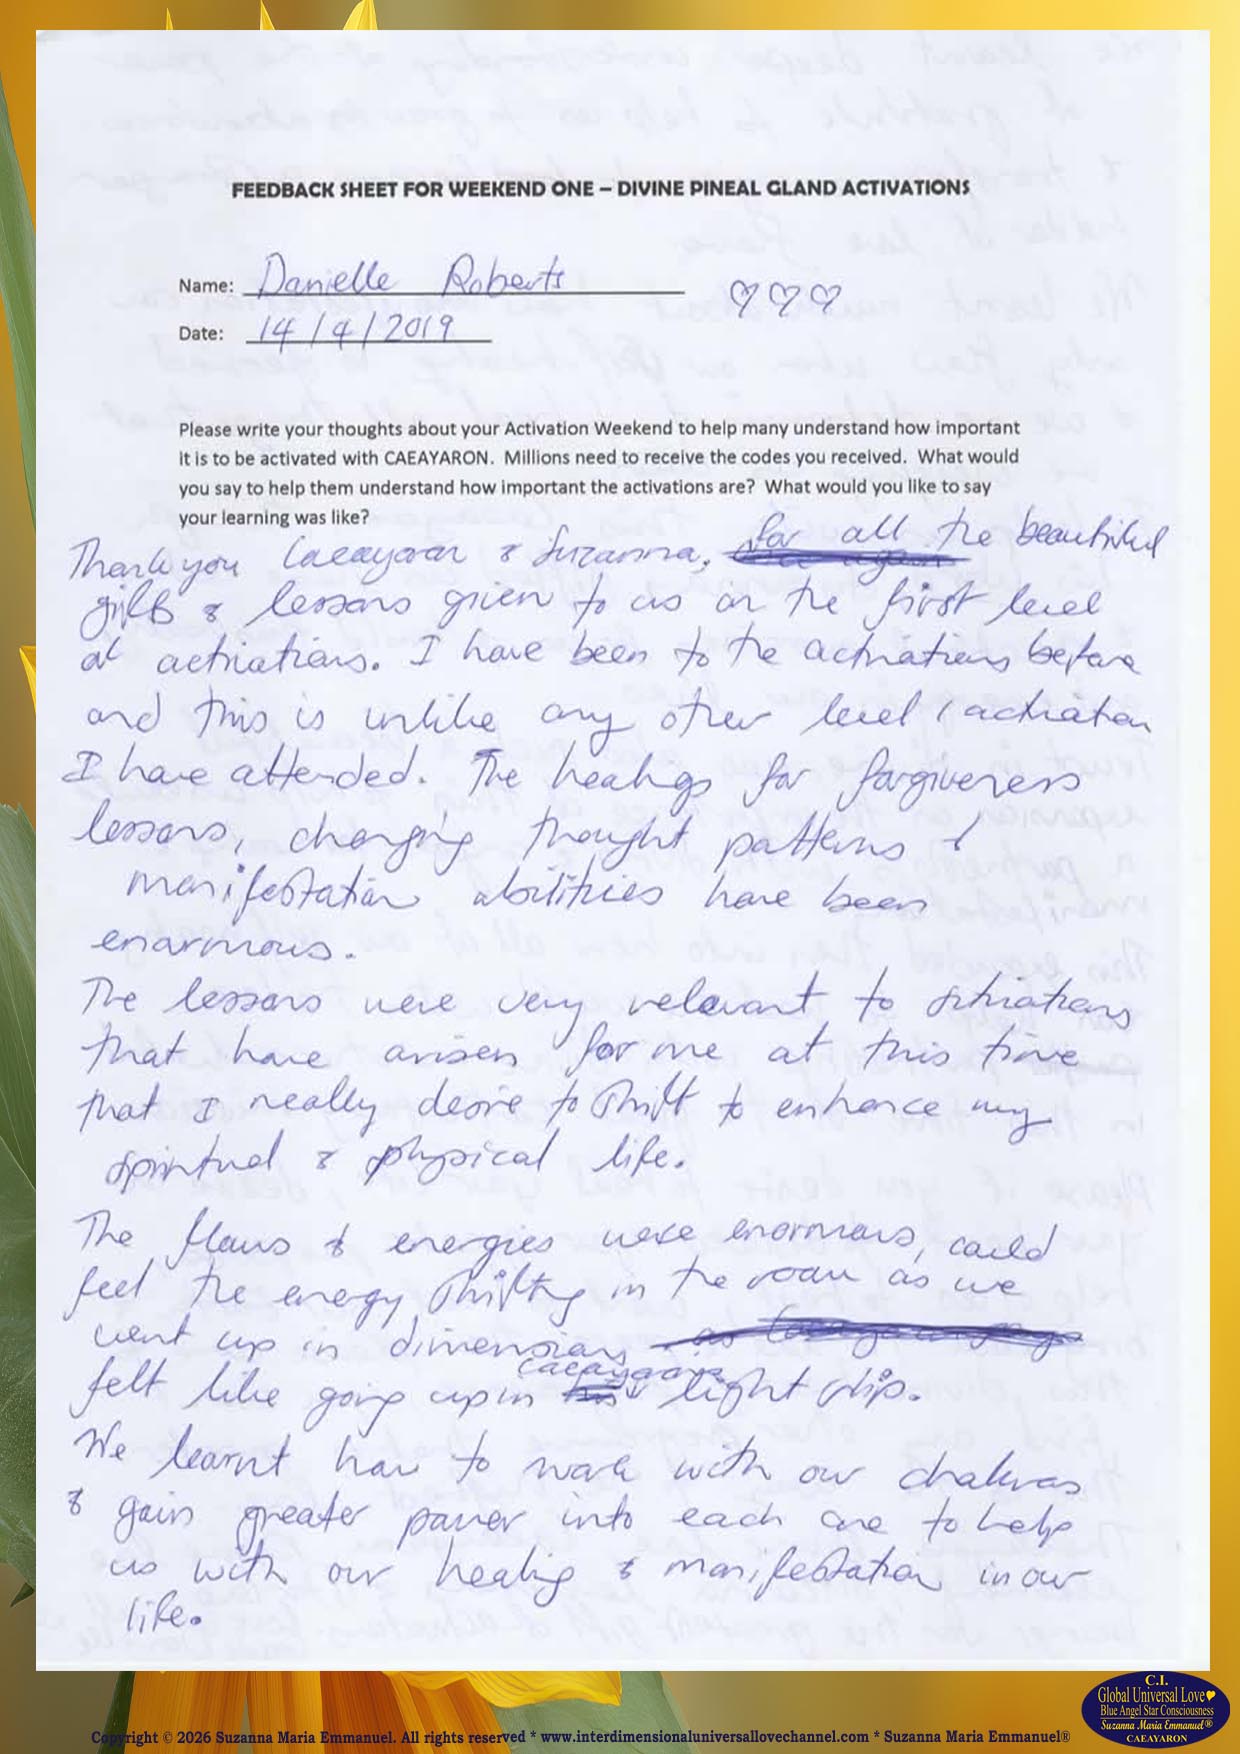 FEEDBACK SHEET FOR WEEKEND ONE – DIVINE PINEAL GLAND ACTIVATIONS
Name: Danielle Roberts ♡♡♡
Date: 14/4/2019
Please write your thoughts about your Activation Weekend to help many understand how important
it is to be activated with CAEAYARON. Millions need to receive the codes you received. What would
you say to help them understand how important the activations are? What would you like to say
your learning was like?
Thank you Caeayaron & Suzanna, for all the beautiful
gifts & lessons given to us on the first level
of activations. I have been to the activations before
and this is unlike any other level / activation
I have attended. The healings for forgiveness
lessons, changing thought patterns &
manifestation abilities have been
enormous.
The lessons were very relevant to situations
that have arisen for me at this time
that I really desire to shift to enhance my
spiritual & physical life.
The flows & energies were enormous, could
feel the energy shifting in the room as we
went up in dimensions
felt like going up in Caeayaron's light ship.
We learnt how to work with our chakras
& gain greater power into each one to help
us with our healing & manifestation in our
life.
C.I.
Global Universal Love
Blue Angel Star Consciousness
Suzanna Maria Emmanuel®
CAEAYARON
Copyright © 2026 Suzanna Maria Emmanuel. All rights reserved * www.interdimensionaluniversallovechannel.com * Suzanna Maria Emmanuel®